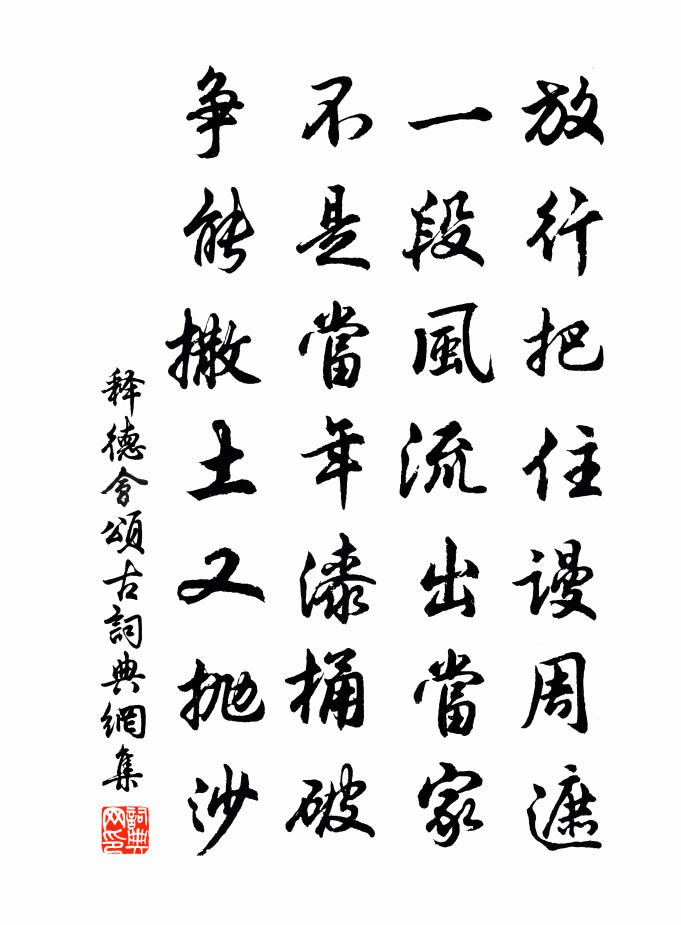 放行把住謾周遮
一段風流出當家
不是當年漆桶破
争能撒土又抛沙
释德會頌古詞典網集
詞典网印